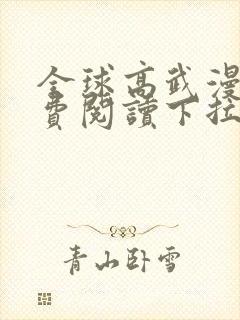 全球高武漫
費閱讀下拉
青山臥雪